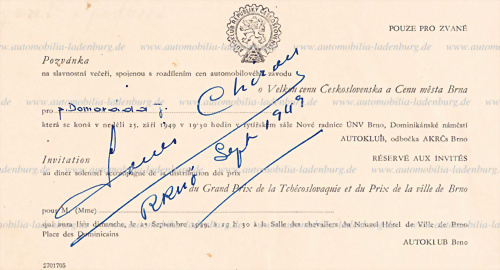 POUZE PRO ZVANÉ
www.automobilia-ladenburg.de
Pozvánka
na slavnostní večeři, spojenou s rozdílením cen automobilového závodu
o Velkou cenu Československa a Cenu města Brna
pro p. Domorada J.
která se koná v neděli 25. září 1949 v 19,30 hodin v rytířském sále Nové radnice ÚNV Brno, Dominikánské náměstí
AUTOKLUB, odbočka AKRČs Brno
Louis Chiron
Sept 1949
BRNO
Invitation
RÉSERVÉ AUX INVITÉS
au dîner solennel accompagné de la distribution des prix
au Grand Prix de la Tchécoslovaquie et du Prix de la ville de Brno
pour M. (Mme)
qui aura lieu dimanche, le 25 Septembre 1949, à 19 h 30 à la Salle des chevaliers du Nouvel Hôtel de Ville de Brno
Place des Dominicains
AUTOKLUB Brno
2701705